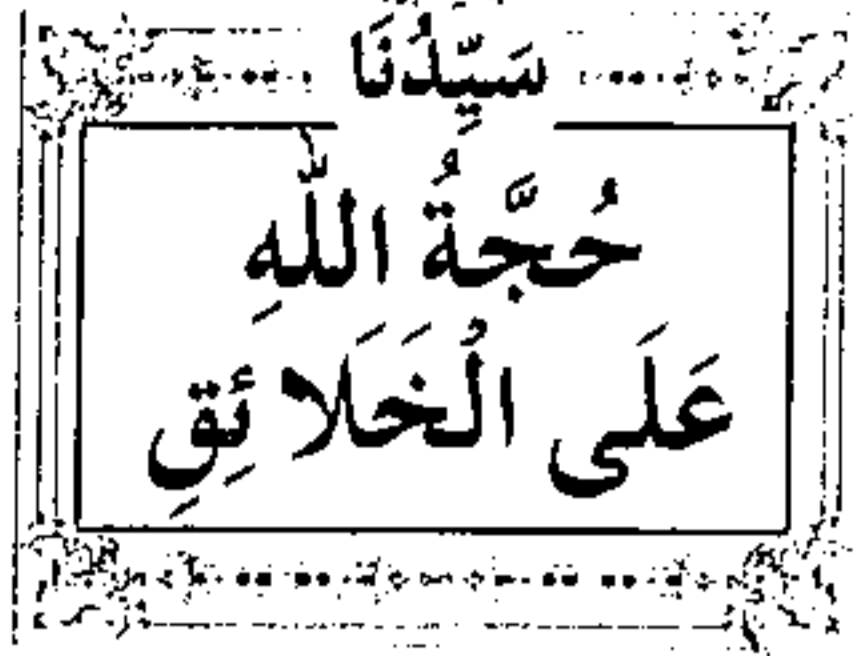 سَيِّدُنَا
حُجَّةُ اللّٰهِ
عَلَى الْخَلَائِقِ